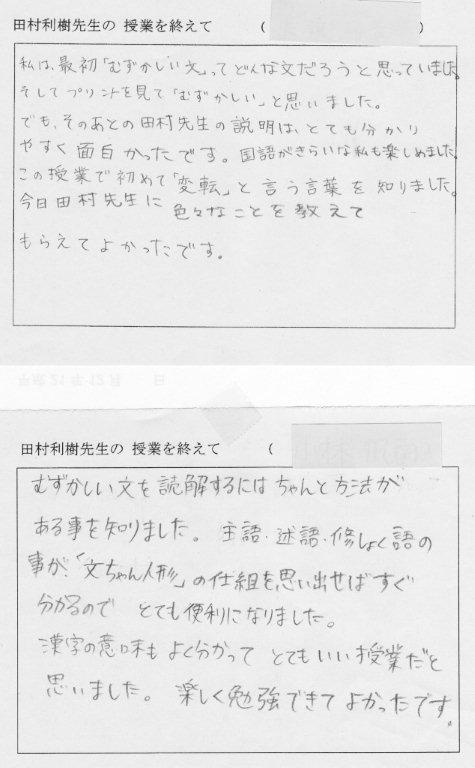 田村利樹先生の 授業を終えて （ ）
私は、最初「むずかしい文」ってどんな文だろうと思っていました。
そしてプリントを見て「むずかしい」と思いました。
でも、そのあとの田村先生の説明は、とても分かり
やすく面白かったです。国語がきらいな私も楽しめました。
この授業で初めて「変転」と言う言葉を知りました。
今日田村先生に色々なことを教えて
もらえてよかったです。
平成21年12月 日
田村利樹先生の 授業を終えて （
むずかしい文を読解するにはちゃんと方法が
ある事を知りました。主語・述語・修しょく語の
事が、「文ちゃん人形」の仕組を思い出せばすぐ
分かるので とても便利になりました。
漢字の意味もよく分かって とてもいい授業だと
思いました。楽しく勉強できてよかったです。